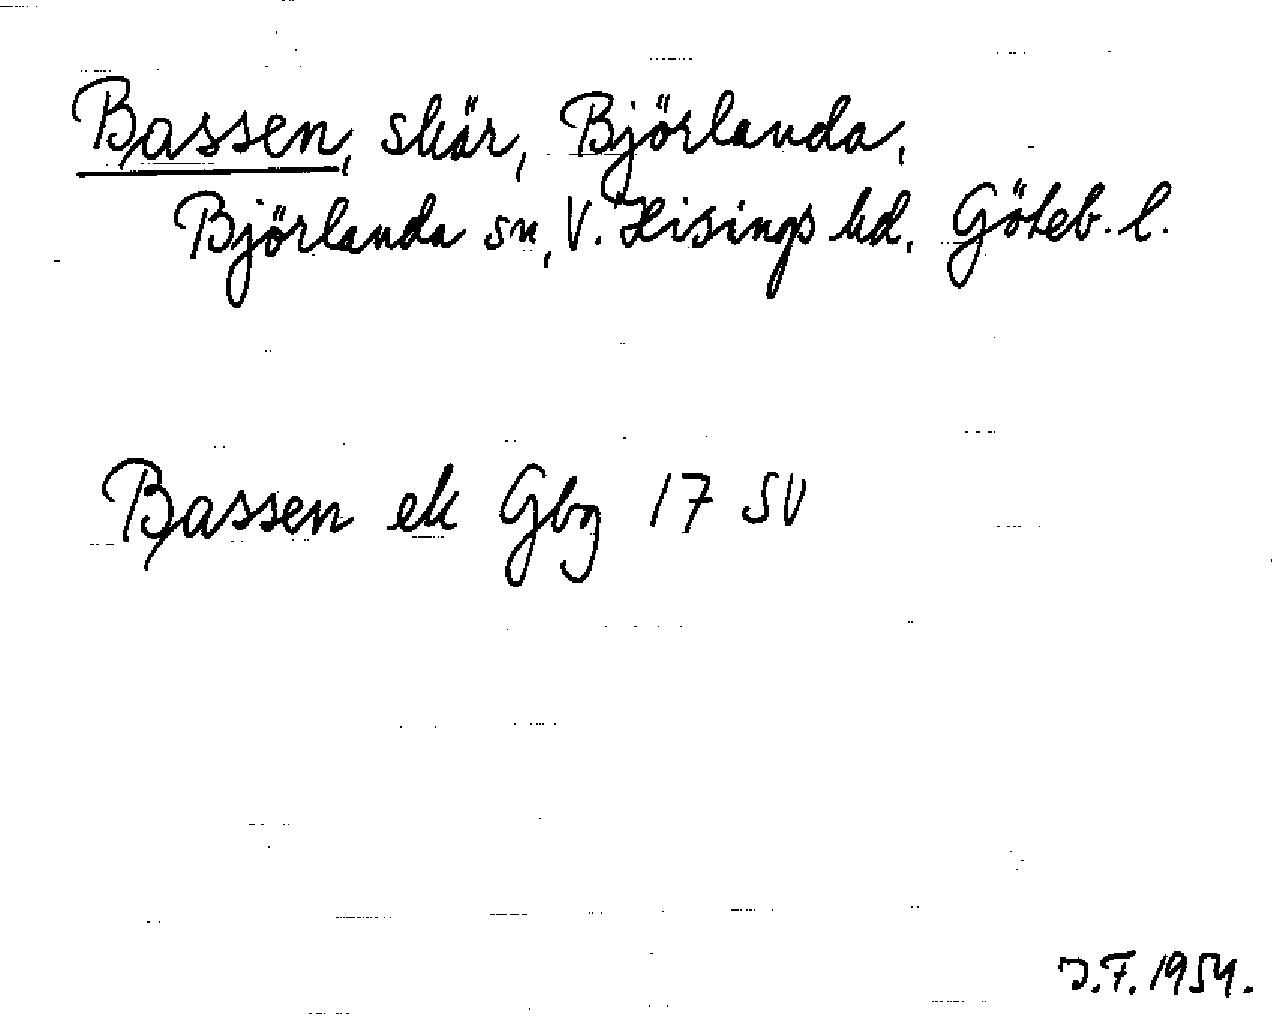 Bassen, skär, Björlanda,
Björlanda sn, V. Hisings hd, Göteb. l.
Bassen ek Gbg 17 SV
J.F. 1954.